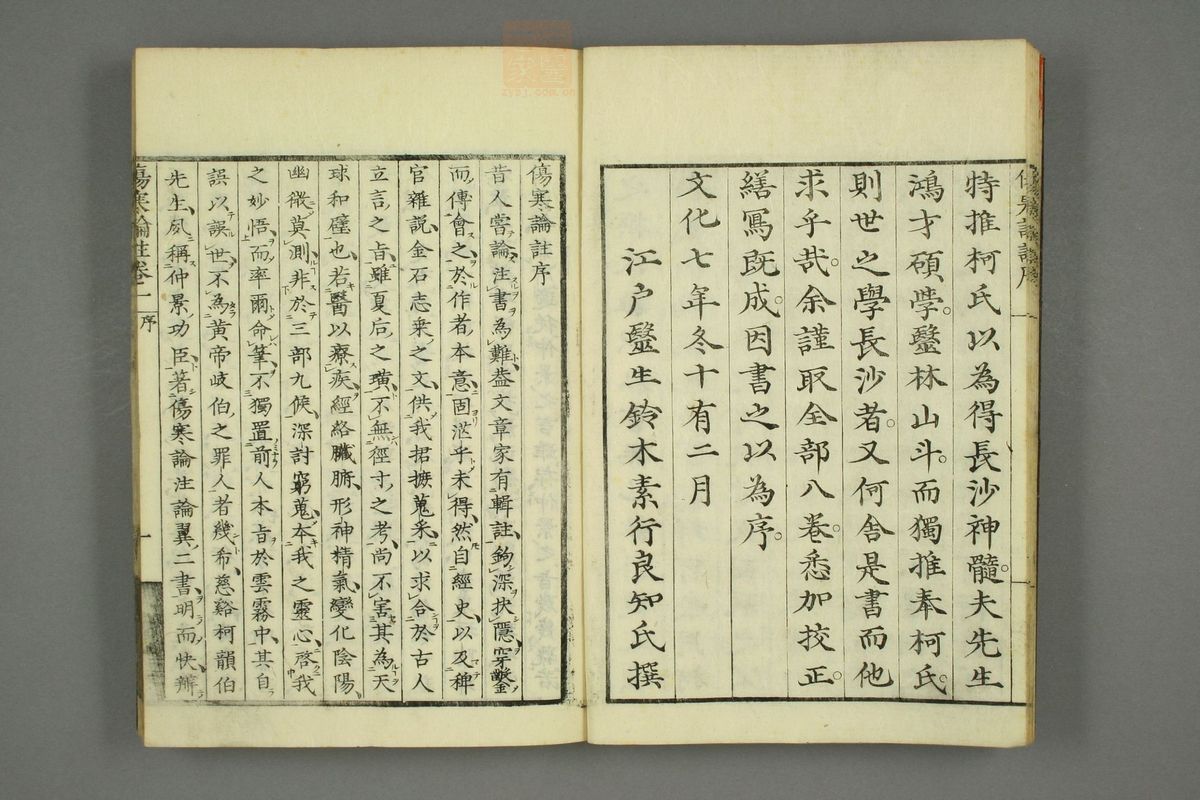 特推柯氏以為得長沙神髓夫先生
鴻才碩學毉林山斗而獨推奉柯氏
則世之學長沙者又何舍是書而他
求乎哉余謹取全部八卷悉加挍正
繕寫既成因書之以為序
文化七年冬十有二月
江户毉生鈴木素行良知氏撰
傷寒論註序
昔人嘗論註書為難蓋文章家有輯註鉤深抉隱穿鑿
而傳會之於作者本意固茫乎未得然自經史以及稗
官雜説金石志乘之文供我捃摭蒐采以求合於古人
立言之旨雖夏后之璜不無徑寸之考尚不害其為天
球和璧也若醫以療疾經絡臟腑形神精氣變化陰陽
幽微莫測非於三部九候深討窮蒐本我之靈心啓我
之妙悟而率爾命筆不獨置前人本旨於雲霧中其自
誤以誤世不為黃帝岐伯之罪人者幾希慈谿柯韻伯
先生夙稱仲景功臣著傷寒論注論翼二書明而快辯
傷寒論註卷一
序
一
zysj.com.cn